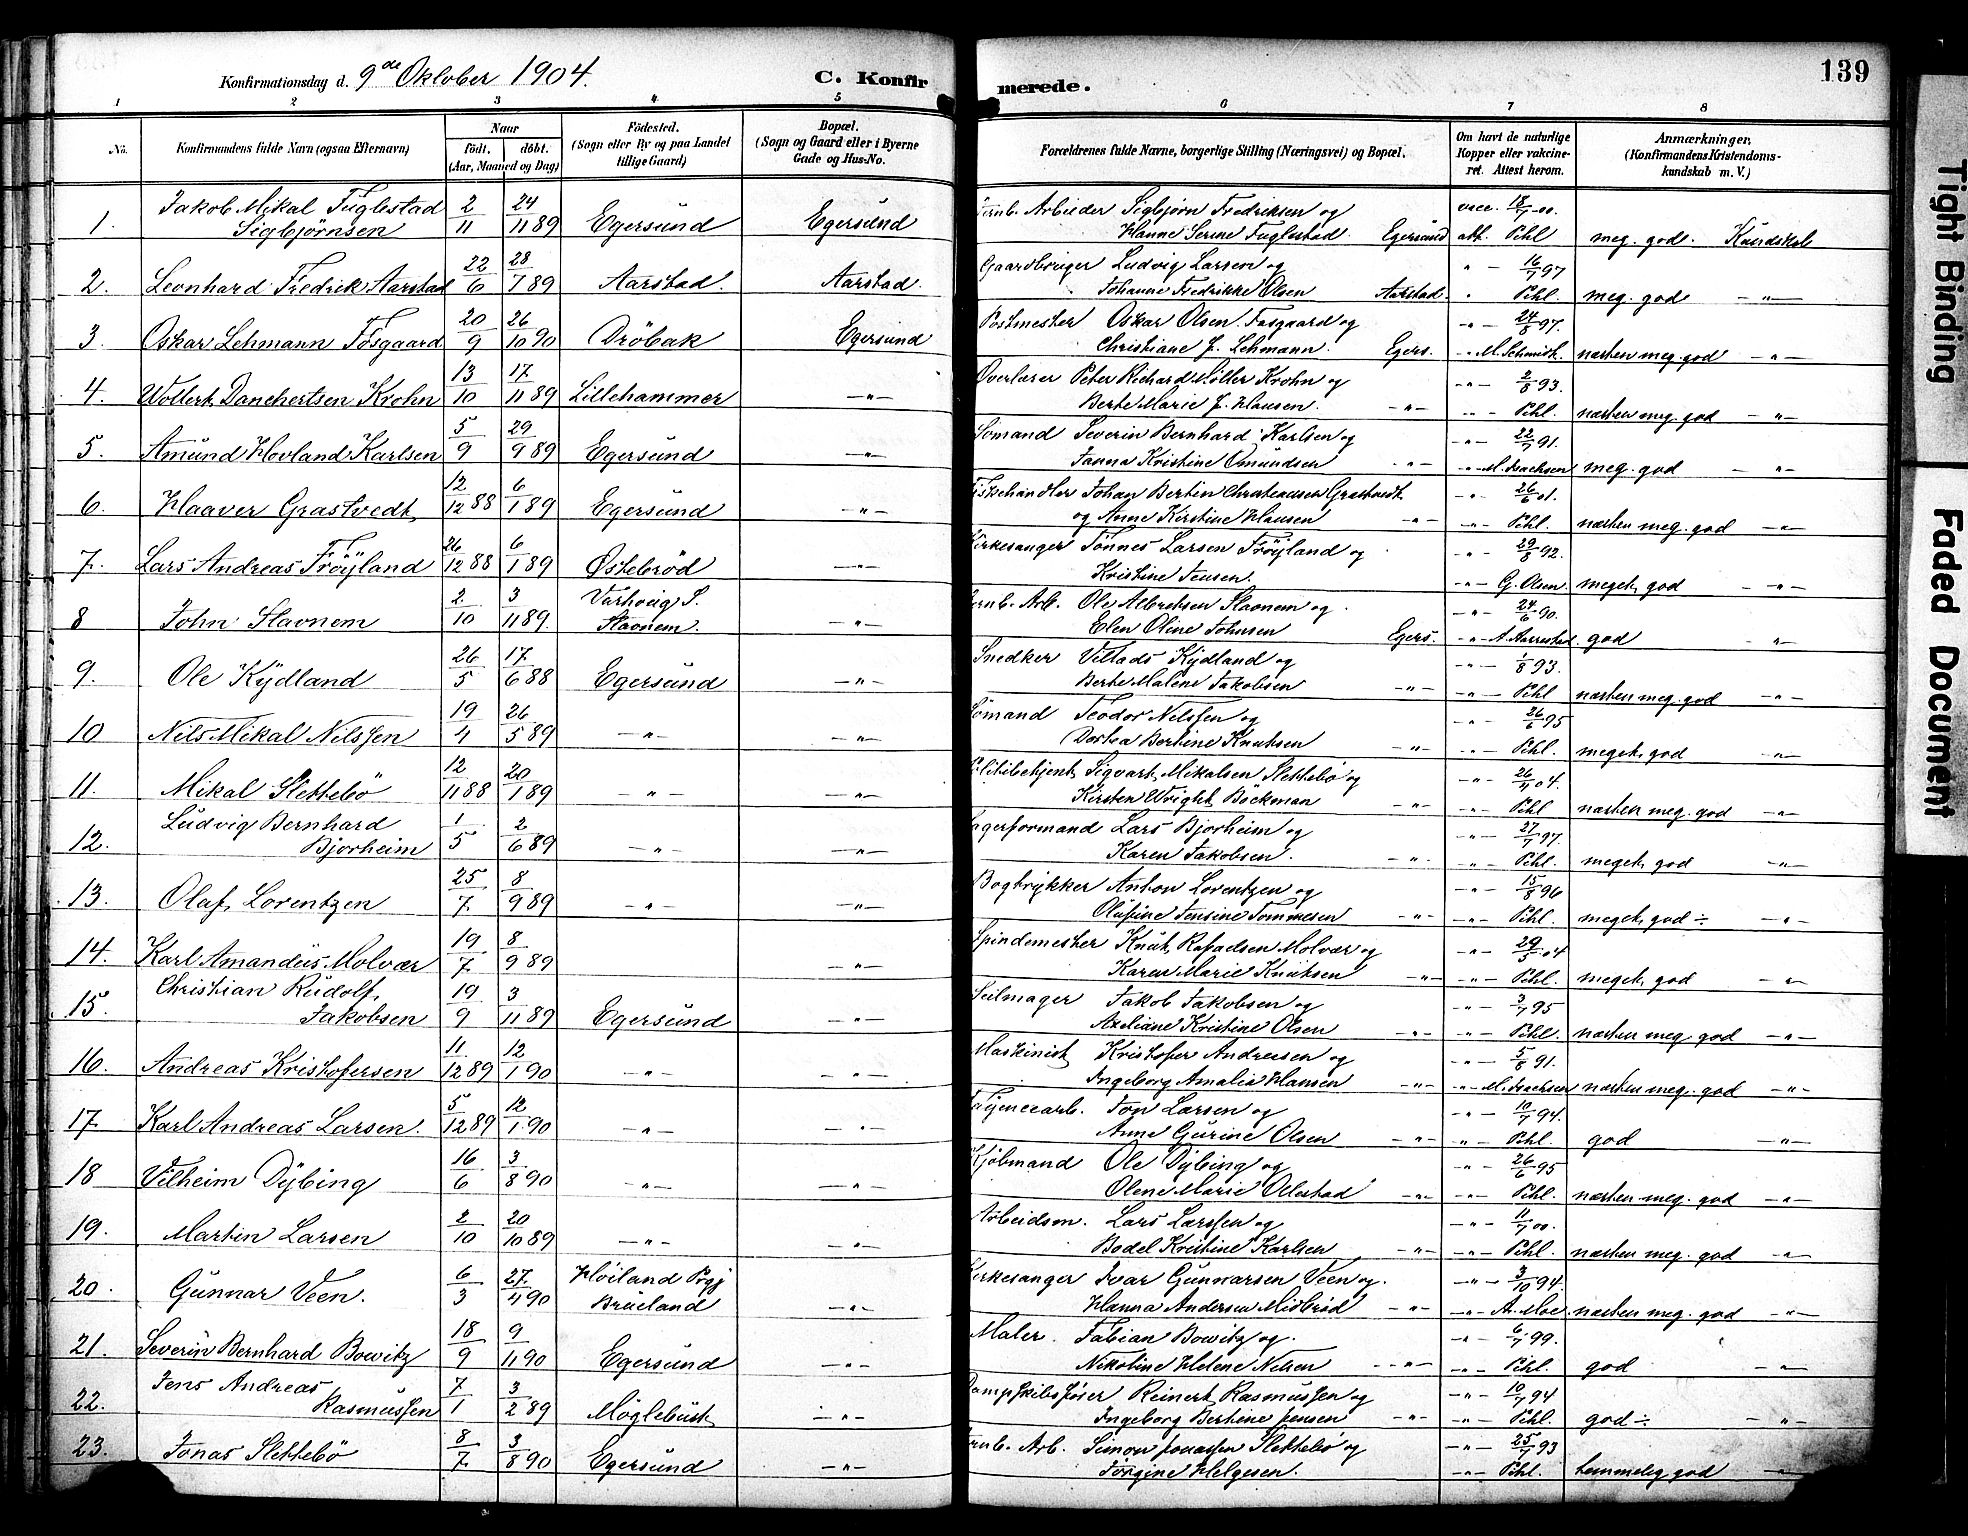 Konfirmationsdag d. 9de Oktober 1904. C. Konfirmerede. 139
1 2 3 4 5 6 7 8
No. Konfirmandens fulde Navn (ogsaa Efternavn) Naar født, døbt. (Aar, Maaned og Dag) Fødested. (Sogn eller By og paa Landet tillige Gaard) Bopæl. (Sogn og Gaard eller i Byerne Gade og Hus-No. Forældrenes fulde Navne, borgerlige Stilling (Næringsvei) og Bopæl. Om havt de naturlige Kopper eller vakcineret. Attest herom. Anmærkninger. (Konfirmandens Kristendomskundskab m. V.)
1. Jakob Mikal Fuglestad Sigbjørnsen 2/11 24/11 89 Egersund Egersund Arbeider Sigbjørn Fredriksen og Hanne Serine Fuglestad. Egersund vacc. 18/7 00. att. Pihl meg. god. Kundskab
2. Leonhard Fredrik Aarstad 22/6 28/7 89 Aarstad. Aarstad. Gaardbruger Ludvig Larsen og Johanne Fredrikke Olsen Aarstad. " - 16/7 97 " Pihl. meg. god - " -
3. Oskar Lehmann Fosgaard 20/9 26/10 90 Drøbak Egersund Postmester Oskar Olsen Fosgaard og Christiane J. Lehmann. Egers. - " - 24/8 97. - " M. Schmidt. næsten meg. god - " -
4. Wollert Danchertsen Krohn 13/10 17/11 89 Lillehammer - " - Overlærer Peter Richard Møller Krohn og Berte Marie J. Hansen. - " - - " - 2/8 93. - " - Pihl. næsten meg. god - " -
5. Amund Hovland Karlsen 5/9 29/9 89 Egersund - " - Sømand Severin Bernhard Karlsen og Janna Kristine Omundsen - " - - " - 22/9 91. - " - M. Isachsen meg. god - " -
6. Haaver Grastvedt 12/12 88 6/1 89 Egersund - " - Fiskehandler Johan Bertin Christensen Grastvedt og Anne Kirstine Hansen - " - - " - 26/6 01. - " - Pihl. næsten meg. god - " -
7. Lars Andreas Frøyland 26/12 88 6/1 89 Østebrød - " - Kirkesanger Tønnes Larsen Frøyland og Kristine Jensen. - " - 29/8 92. - " - G. Olsen meget god - " -
8 John Slavnem 2/10 3/11 89. Varhoug S. Slavnem. - " - Jernb. Arb. Ole Albretsen Slavnem og Elen Oline Johnsen Egers. - " - 24/6 90. - " - A. Aarrestad. god "
9. Ole Kydland 26/5 17/6 88 Egersund - " - Snedker Villads Kydland og Berte Malene Jakobsen - " - - " - 1/8 93. - " - Pihl næsten meg. god - " -
10 Nils Mikal Nilssen 19/4 26/5 89 - " - - " - Sømand Teodor Nilssen og Dortea Bertine Knutsen " - - " - 26/6 95 - " - Pihl. meget god " -
11. Mikal Slettebø 12/11 88 20/1 89 - " - - " - Politibetjent Sigvart Mikalsen Slettebø og Kirsten Wright Bøckman - " - - " - 26/4 04. - " - Pihl næsten meg. god - " -
12. Ludvig Bernhard Bjorheim 1/5 2/6 89 - " - - " - Lagerformand Lars Bjorheim og Karen Jakobsen. - " - - " - 27/7 97. - " - Pihl. meget god - " -
13. Olaf Lorentzen 25/7 8/9 89 - " - - " - Bogtrykker Anton Lorentzen og Olufine Jensine Tommesen - " - - " - 15/8 96 - " - Pihl. meget god ÷ - " -
14. Karl Amandus Molvær 19/7 8/9 89 - " - Spindemester Knut Rafaelsen Molvær og Karen Marie Knutsen " - - " - 29/5 04 - " - Pihl. meget god - " -
15. Christian Rudolf Jakobsen 19/9 3/11 89 Egersund - " - Seilmager Jakob Jakobsen og Axeliane Kristine Olsen - " - - " - 3/7 95 - " - Pihl. næsten meg. god - " -
16. Andreas Kristofersen 11/12 89 12/1 90 - " - - " - Maskinist Kristofer Andreesen og Ingeborg Amalia Hansen - " - - " - 5/8 91. - " - M. Isachsen næsten meg. god - " -
17. Karl Andreas Larsen. 5/12 89 12/1 90 - " - - " - Fayencearb. Jon Larsen og Anne Gurine Olsen - " - - " - 10/7 94. - " - Pihl. god - " -
18 Vilheim Dybing 16/6 3/8 90 - " - - " - Kjøbmand Ole Dybing og Olene Marie Ollestad - " - - " - 26/6 95 - " - Pihl. næsten meg. god - " -
19. Martin Larsen 2/10 20/10 89 - " - - " - Arbeidsm. Lars Larssen og Bodel Kristine Karlsen - " - - " - 11/7 00. - " - Pihl. næsten meg. god - "
20. Gunnar Veen. 6/3 27/4 90 Høiland Prgj Brueland - " - Kirkesanger Ivar Gunnarsen Veen og Hanna Andersen Midbrød - " - - " - 3/10 94. - " - A. Moe næsten meg. god - " -
21. Severin Bernhard Bowitz 18/9 9/11 90 Egersund - " - Maler. Fabian Bowitz og Nikoline Helene Nelsen - " - - " - 6/7 99. - " - Pihl. god - " -
22. Jens Andreas Rasmussen 7/1 3/2 89 Møglebust - " - Dampskibsfører Reinert Rasmussen og Ingeborg Bertine Jensen - " - - " - 10/7 94 - " - Pihl. god ÷ - " -
23. Jonas Slettebø 8/7 3/8 90 Egersund - " - Jernb. Arb. Simon Jonassen Slettebø og Jørgine Helgesen. - " - 25/7 93 - " - Pihl. temmelig god - "
Tight Binding
Faded Document